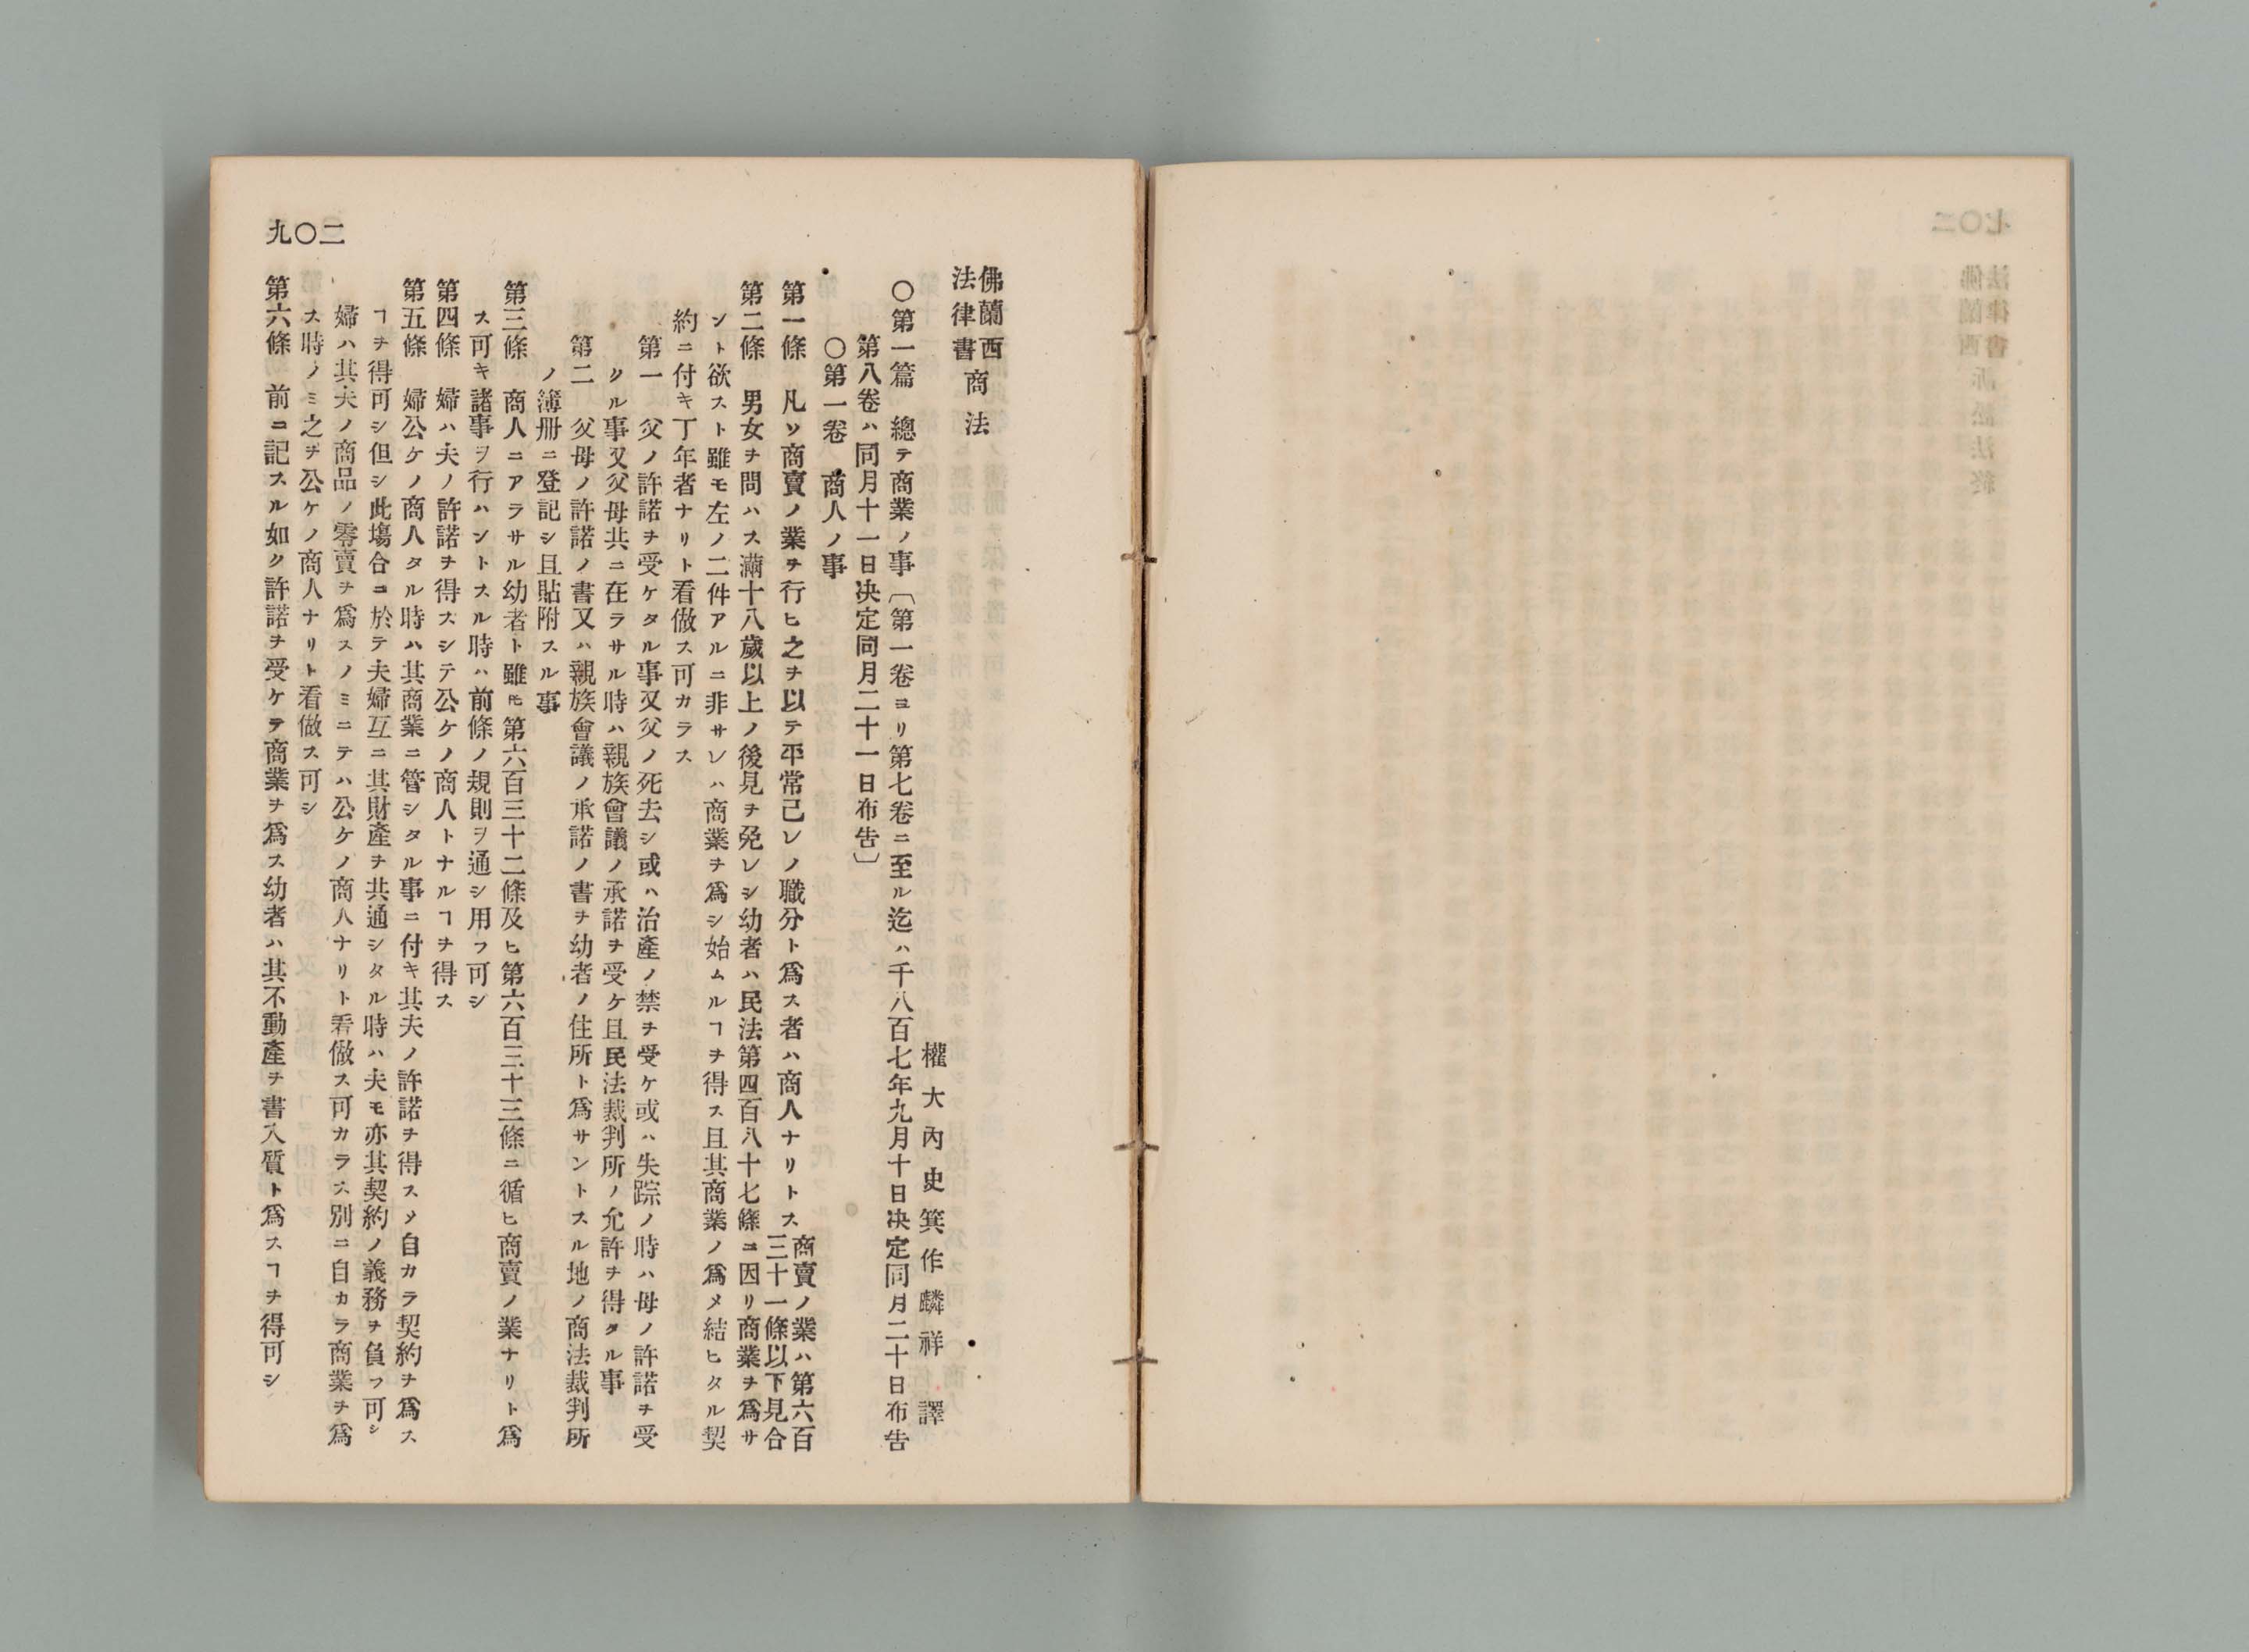 佛蘭西
法律書 商法
權大內史箕作麟祥 譯
〇第一篇 總テ商業ノ事〔第一卷ヨリ第七卷ニ至ル迄ハ千八百七年九月十日決定同月二十日布告
第八卷ハ同月十一日決定同月二十一日布吿〕
〇第一卷 商人ノ事
第一條 凡ソ商賣ノ業ヲ行ヒ之ヲ以テ平常己レノ職分ト爲ス者ハ商人ナリトス商賣ノ業ハ第六百
三十一條以下見合
第二條 男女ヲ問ハス滿十八歲以上ノ後見ヲ免レシ幼者ハ民法第四百八十七條ニ因リ商業ヲ爲サ
ント欲スト雖モ左ノ二件アルニ非サレハ商業ヲ爲シ始ムルヿヲ得ス且其商業ノ爲メ結ヒタル契
約ニ付キ丁年者ナリト看做ス可カラス
第一 父ノ許諾ヲ受ケタル事又父ノ死去シ或ハ治產ノ禁ヲ受ケ或ハ失踪ノ時ハ母ノ許諾ヲ受
クル事又父母共ニ在ラサル時ハ親族會議ノ承諾ヲ受ケ且民法裁判所ノ允許ヲ得タル事
第二 父母ノ許諾ノ書又ハ親族會議ノ承諾ノ書ヲ幼者ノ住所ト爲サントスル地ノ商法裁判所
ノ簿册ニ登記シ且貼附スル事
第三條 商人ニアラサル幼者ト雖𪜈第六百三十二條及ヒ第六百三十三條ニ循ヒ商賣ノ業ナリト爲
ス可キ諸事ヲ行ハントスル時ハ前條ノ規則ヲ通シ用フ可シ
第四條 婦ハ夫ノ許諾ヲ得スシテ公ケノ商人トナルヿヲ得ス
第五條 婦公ケノ商人タル時ハ其商業ニ管シタル事ニ付キ其夫ノ許諾ヲ得スメ自カラ契約ヲ爲ス
ヿヲ得可シ但シ此塲合ニ於テ夫婦互ニ其財產ヲ共通シタル時ハ夫モ亦其契約ノ義務ヲ負フ可シ
婦ハ其夫ノ商品ノ零賣ヲ爲スノミニテハ公ケノ商人ナリト看做ス可カラス別ニ自カラ商業ヲ爲
ス時ノミ之ヲ公ケノ商人ナリト看做ス可シ
第六條 前ニ記スル如ク許諾ヲ受ケテ商業ヲ爲ス幼者ハ其不動產ヲ書入質ト爲スヿヲ得可シ
九〇二